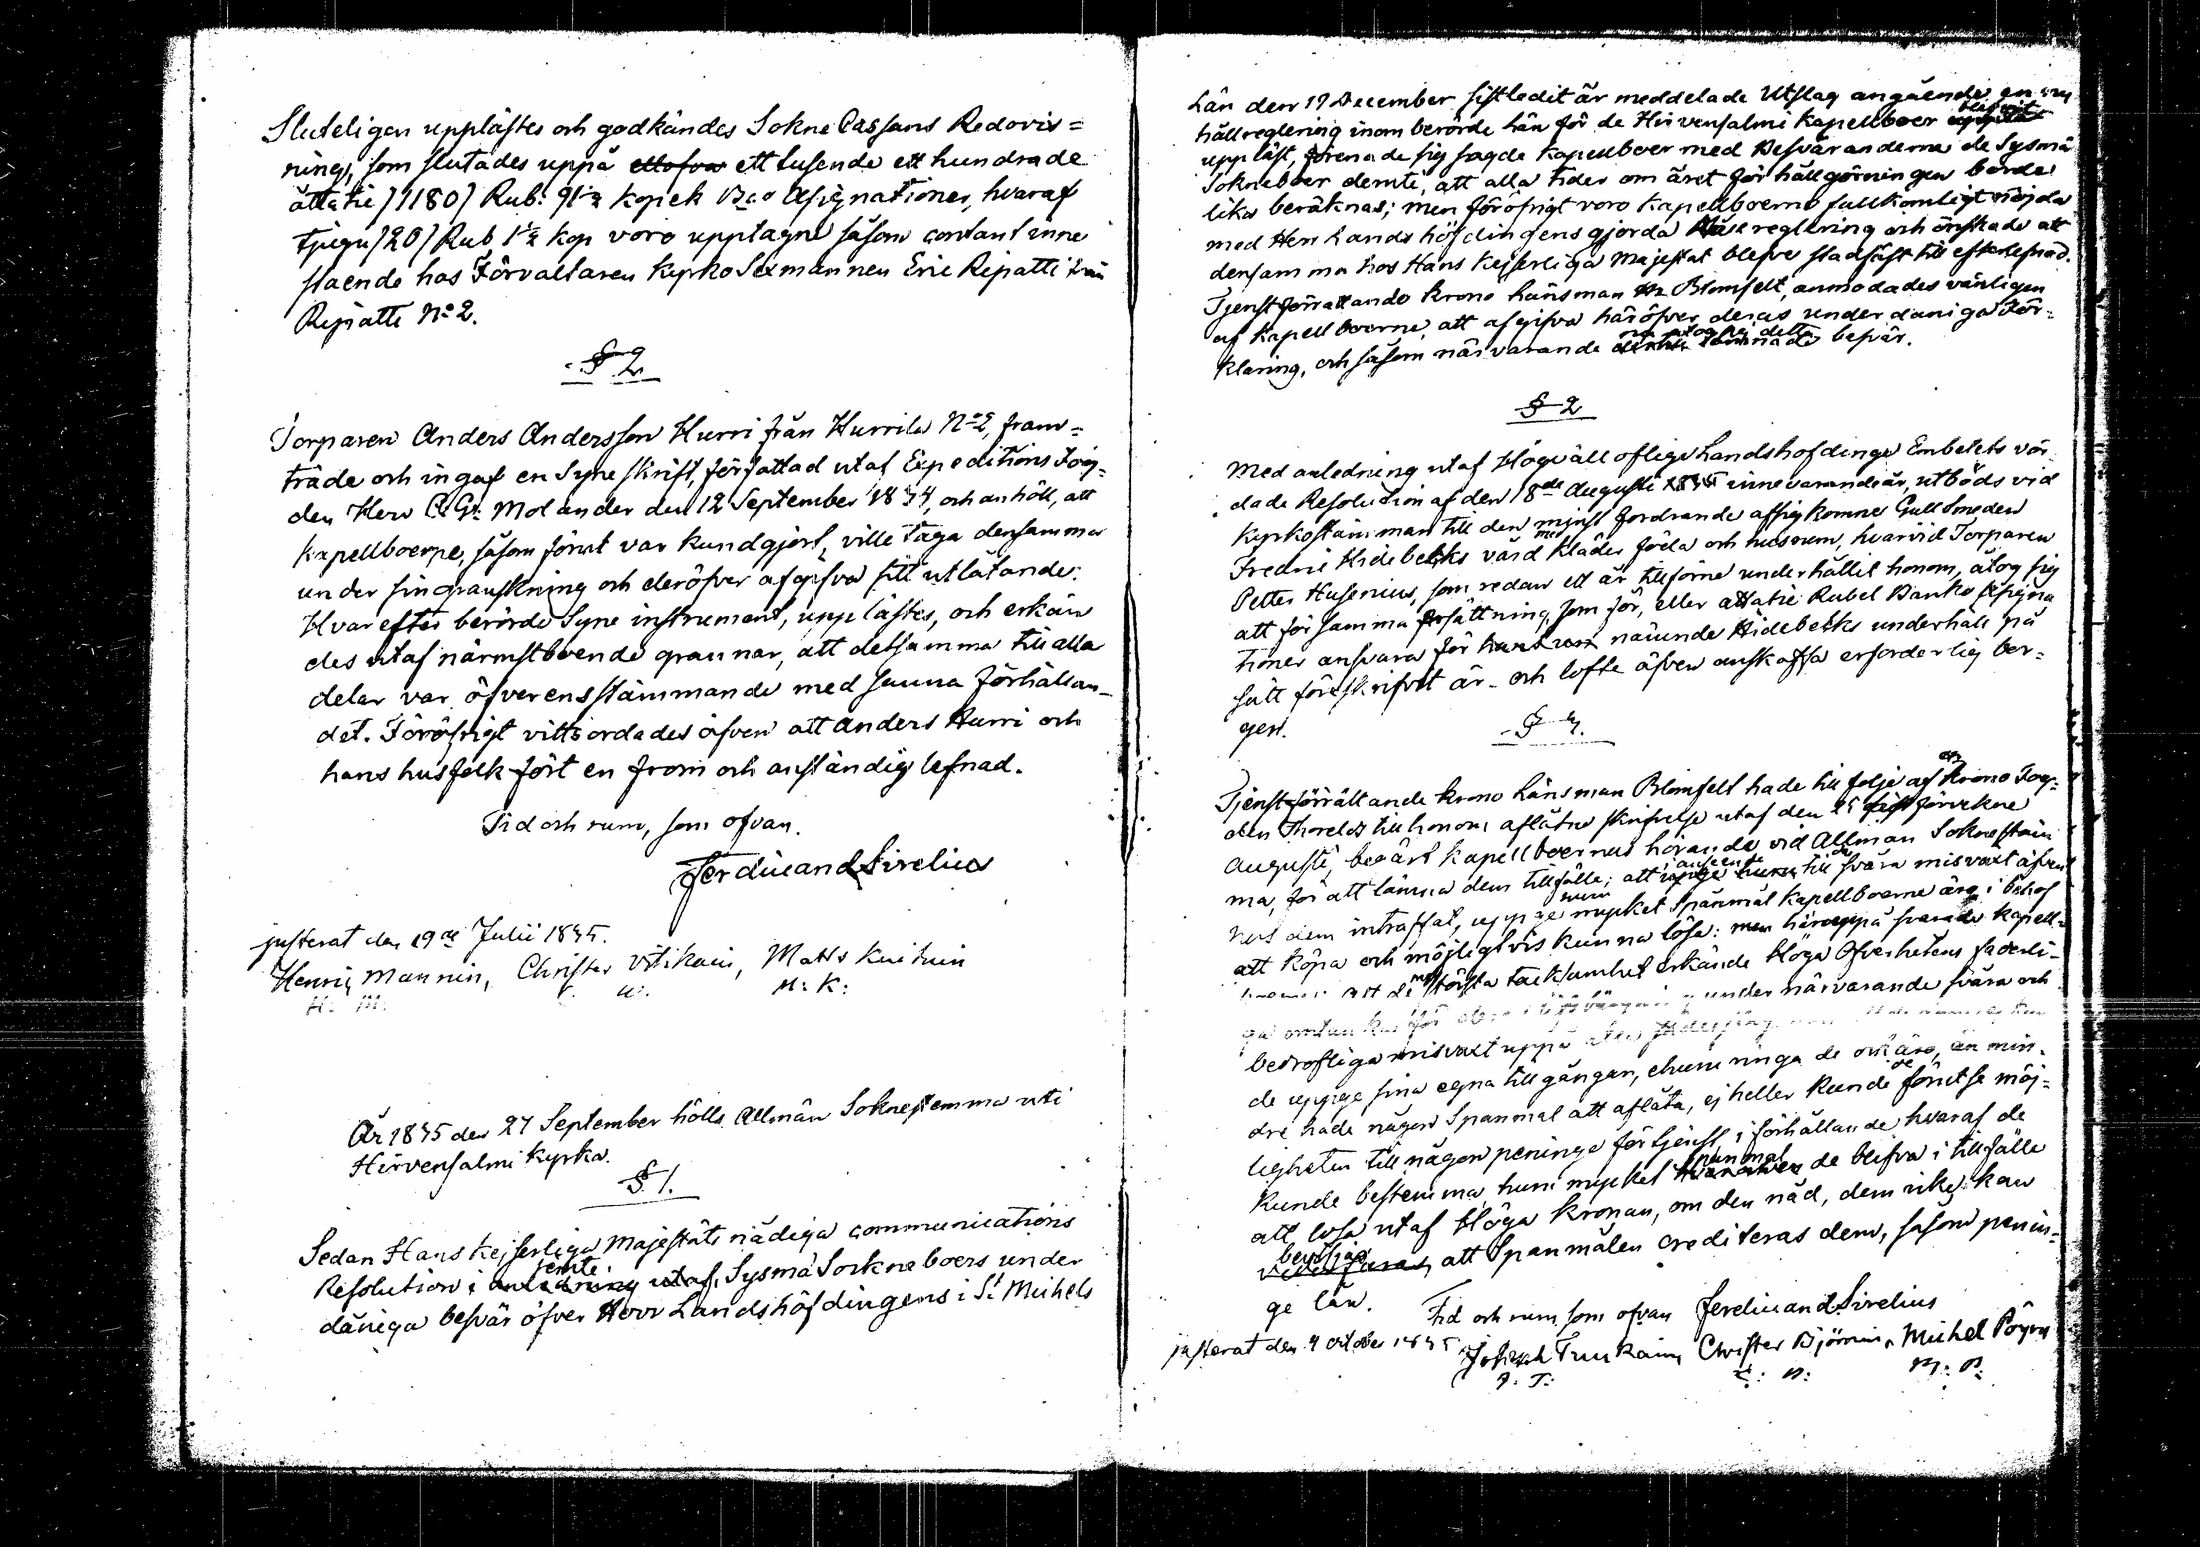 Sluteligen upplästes och godkändes Sokne Cassans Redovis=
ning, som slutades uppå ett tusende ett hundrade
åttatie /1180/ Rub: 91½ kopek B:co Assignationer, hvaraf
tjugu /20/ Rub 1½ kop voro upptagne såsom contant inne
stående hos Förvaltaren kyrko Sexmannen Eric Ripatti från
Ripatti No 2.
§ 2
Torparen Anders Andersson Hurri från Hurrila No 2, fram=
trädde och ingaf en Syne skrift, författad utaf Expeditions Fog=
den Herr C. G: Molander den 12 September 1834, och anhöll, att
kapellboerne, såsom förut var kundgjort, ville taga densamma
under sin granskning och deröfver afgifva sitt utlåtande.
Hvarefter berörde Syne instrument, upplästes, och erkän
des utaf närmstboende grannar, att detsamma till alla
delar var öfverensstämmande med sanna förhållan=
det. Föröfrigt vittsordades äfven att Anders Hurri och
hans husfolk fört en from och anständig lefnad.
Tid och rum, som ofvan.
Ferdinand Sirelius
justerat den 19de Julii 1835.
Henric Mannin, Christer Vitikain, Matts Kuituin
H: M: M: K:
År 1835 den 27 September hölls Allmän Soknestemma uti
Hirvensalmi kyrka.
§ 1.
Sedan Hans Kejserliga Majestäts nådiga communications
Resolution i anledning utaf jemte Sysmä Sockneboers under
dåniga besvär öfver Herr Landshöfdingens i S:t Michels
Län den 17 December sistledit år meddelade Utslag angående en ny
hållreglering inom berörde Län för de Hirvensalmi kapellboer blifvit
uppläst, förenade sig sagde kapellboer med Besvaranderne de Sysmä
Sokneboer derute, att alla tider om året för hållgörningen borde
lika beräknas; men föröfrigt voro kapellboerne fullkomligt nöjda
med Herr Landshöfdingens gjorda reglering och önskade att
densamma hos Hans Kejserliga Majestät blefve stadfäst till efterlefnad.
Tjenstförrättande krono Länsman Blomfelt, anmodades vänligen
af kapellboerne, att afgifva häröfver deras underdåniga För=
klaring, och såsom närvarande åtog sig detta besvär.
§ 2
Med anledning utaf Högvällofliga Landshöfdinge Embetets vör
dade Resolution af den 18de Augusti innevarande år, utböds vid
kyrkostämman till den minst fordrande afsigkomne Gullsmeden
Fredric Hidebecks vård med kläder föda och husrum, hvarvid Torparen
Petter Husenius, som redan ett år tillförne underhållit honom, åtog sig
att för samma ersättning, som för, eller åttatie Rubel Banko Assigna
tioner ansvara för nämnde Hidebecks underhåll på
sätt föreskrifvet är och lofte äfven anskaffa erforderlig bor=
gen.
§ 3.
Tjenstförrättande krono Länsman Blomfelt hade till följe af krono Fog=
den Thorelds till honom aflåtne skrifvelse utaf den 25 förvekne
Augusti, begärt kapellboernas hörande vid Allmän Soknestäm
ma, för att lämna dem tillfälle, att i anseende till den svåra misvext äfven
hos dem inträffat, uppge huru mycket Spanmål kapellboerne äro i behof
att köpa och möjligtvis kunna lösa: men häruppå svarade kapell=
boerne: att de med största tacksamhet erkände Höga Öfverhetens faderli=
ga omtanka för under närvarande svåra och
bedrofliga misvext uppå
de uppge sina egna tillgångar, ehuru ringa de ock äro, än min=
dre hade någon Spanmål att aflåta, ej heller kunde de förutse möj=
ligheten till någon peninge förtjenst, i förhållande hvaraf de
kunde bestemma huru mycket Spanmal de blifva i tillfälle
att lösa utaf Höga kronan, om den nåd, dem icke kan
beviljas att Spanmålen crediteras dem, såsom penin=
ge lån.
Tid och rum som ofvan Ferdinand Sirelius
justerat den 4 October 1835. Joseph Tuukain, Christer Björnin, Michel Pöyry
J: T: C: B: M: P: